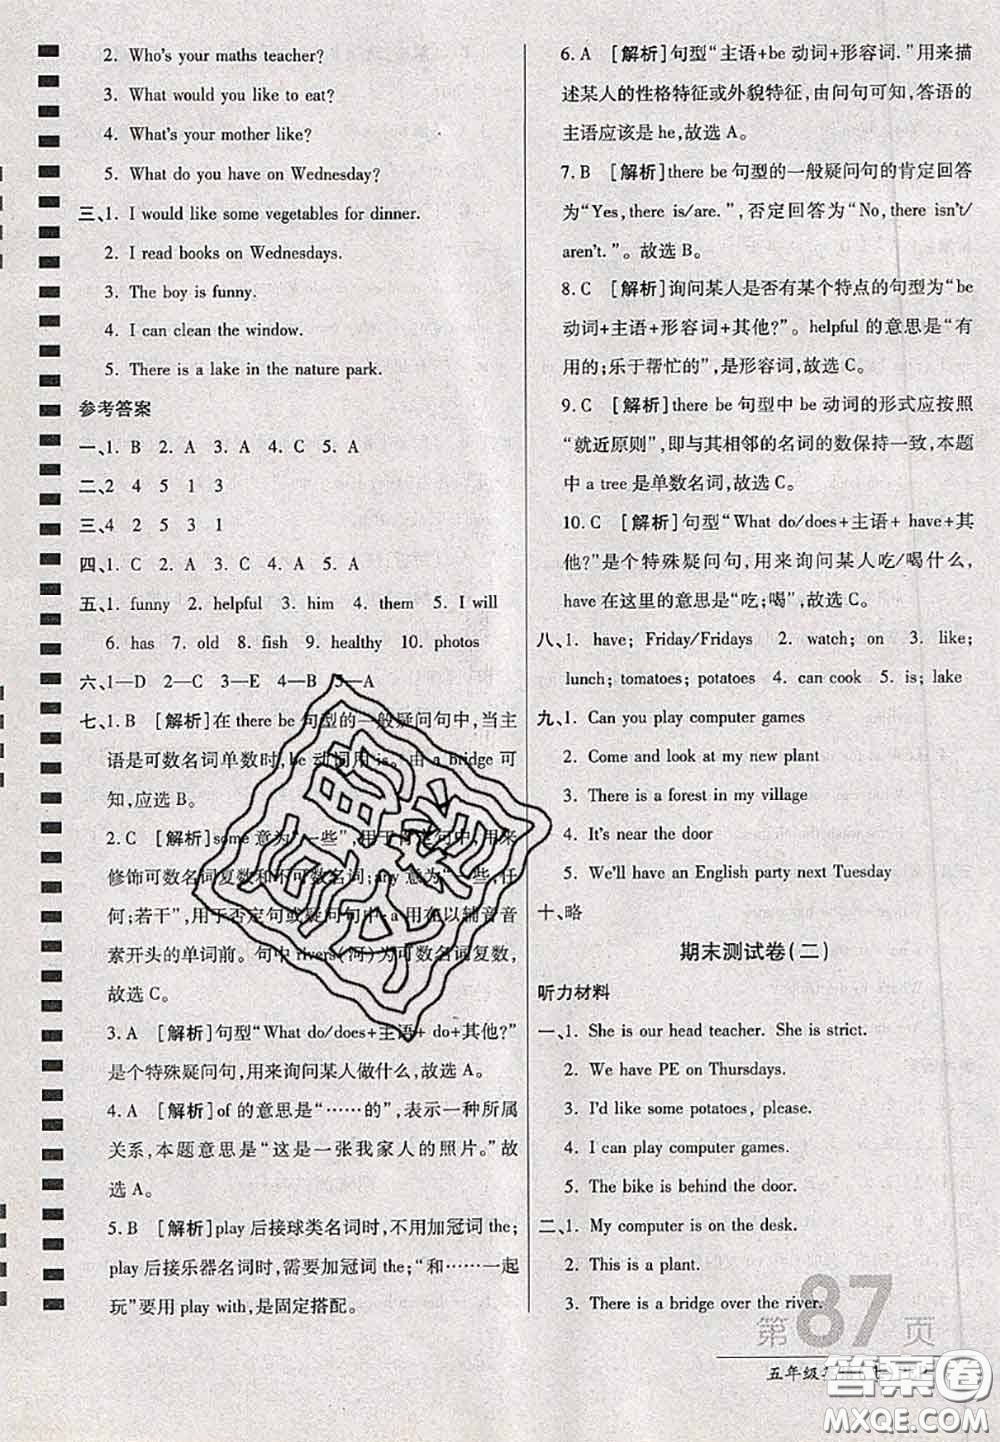 2. Who's your maths teacher?
3. What would you like to eat?
4. What's your mother like?
5. What do you have on Wednesday?
三、1. I would like some vegetables for dinner.
2. I read books on Wednesdays.
3. The boy is funny.
4. I can clean the window.
5. There is a lake in the nature park.
参考答案
一、1. B 2. A 3. A 4. C 5. A
二、2 4 5 1 3
三、4 2 5 3 1
四、1. C 2. A 3. C 4. A 5. A
五、1. funny 2. helpful 3. him 4. them 5. I will
6. has 7. old 8. fish 9. healthy 10. photos
六、1—D 2—C 3—E 4—B 5—A
七、1. B [解析]在 there be 句型的一般疑问句中,当主
语是可数名词单数时,be 动词用 is。由 a bridge 可
知,应选 B。
2. C [解析]some 意为“一些”,用于肯定句中,用来
修饰可数名词复数和不可数名词;any 意为“一些,任
何;若干”,用于否定句或疑问句中;a 用在以辅音音
素开头的单词前。句中 rivers(河)为可数名词复数,
故选 C。
3. A [解析]句型“What do/does+主语+ do+其他?”
是个特殊疑问句,用来询问某人做什么,故选 A。
4. A [解析]of 的意思是“……的”,表示一种所属
关系,本题意思是“这是一张我家人的照片。”故
选 A。
5. B [解析]play 后接球类名词时,不用加冠词 the;
play 后接乐器名词时,需要加冠词 the;“和……一起
玩”要用 play with,是固定搭配。
6. A [解析]句型“主语+be 动词+形容词.”用来描
述某人的性格特征或外貌特征,由问句可知,答语的
主语应该是 he,故选 A。
7. B [解析]there be 句型的一般疑问句的肯定回答
为“Yes,there is/are.”,否定回答为“No,there isn't/
aren't.”。故选 B。
8. C [解析]询问某人是否有某个特点的句型为“be
动词+主语+形容词+其他?”。helpful 的意思是“有
用的;乐于帮忙的”,是形容词,故选 C。
9. C [解析]there be 句型中 be 动词的形式应按照
“就近原则”,即与其相邻的名词的数保持一致,本题
中 a tree 是单数名词,故选 C。
10. C [解析]句型“What do/does+主语+ have+其
他?”是个特殊疑问句,用来询问某人吃/喝什么,
have 在这里的意思是“吃;喝”,故选 C。
八、1. have; Friday/Fridays 2. watch; on 3. like;
lunch; tomatoes; potatoes 4. can cook 5. is; lake
九、1. Can you play computer games
2. Come and look at my new plant
3. There is a forest in my village
4. It's near the door
5. We'll have an English party next Tuesday
十、略
期末测试卷(二)
听力材料
一、1. She is our head teacher. She is strict.
2. We have PE on Thursdays.
3. I'd like some potatoes, please.
4. I can play computer games.
5. The bike is behind the door.
二、1. My computer is on the desk.
2. This is a plant.
3. There is a bridge over the river.
第87页
五年级
答案圈
MXQE.COM